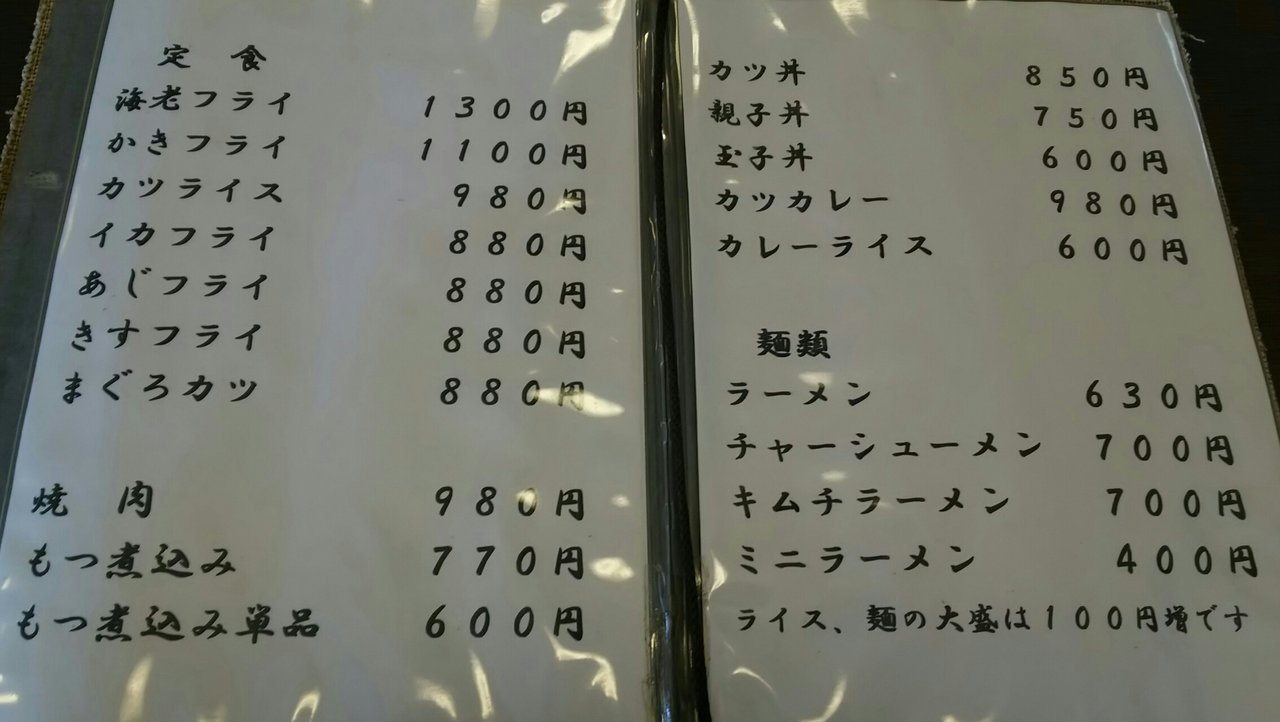 定 食
海老フライ 1300円
かきフライ 1100円
カツライス 980円
イカフライ 880円
あじフライ 880円
きすフライ 880円
まぐろカツ 880円
焼 肉 980円
もつ煮込み 770円
もつ煮込み単品 600円
カツ丼 850円
親子丼 750円
玉子丼 600円
カツカレー 980円
カレーライス 600円
麺類
ラーメン 630円
チャーシューメン 700円
キムチラーメン 700円
ミニラーメン 400円
ライス、麺の大盛は100円増です